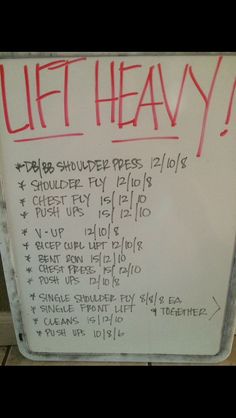 LIFT HEAVY!
* DB/BB SHOULDER PRESS 12/10/8
* SHOULDER FLY 12/10/8
* CHEST FLY 15/12/10
* PUSH UPS 15/12/10
* V-UP 12/10/8
* BICEP CURL LIFT 12/10/8
* BENT ROW 15/12/10
* CHEST PRESS 15/12/10
* PUSH UPS 12/10/8
* SINGLE SHOULDER FLY 8/8/8 EA
* SINGLE FRONT LIFT * TOGETHER
* CLEANS 15/12/10
* PUSH UPS 10/8/6